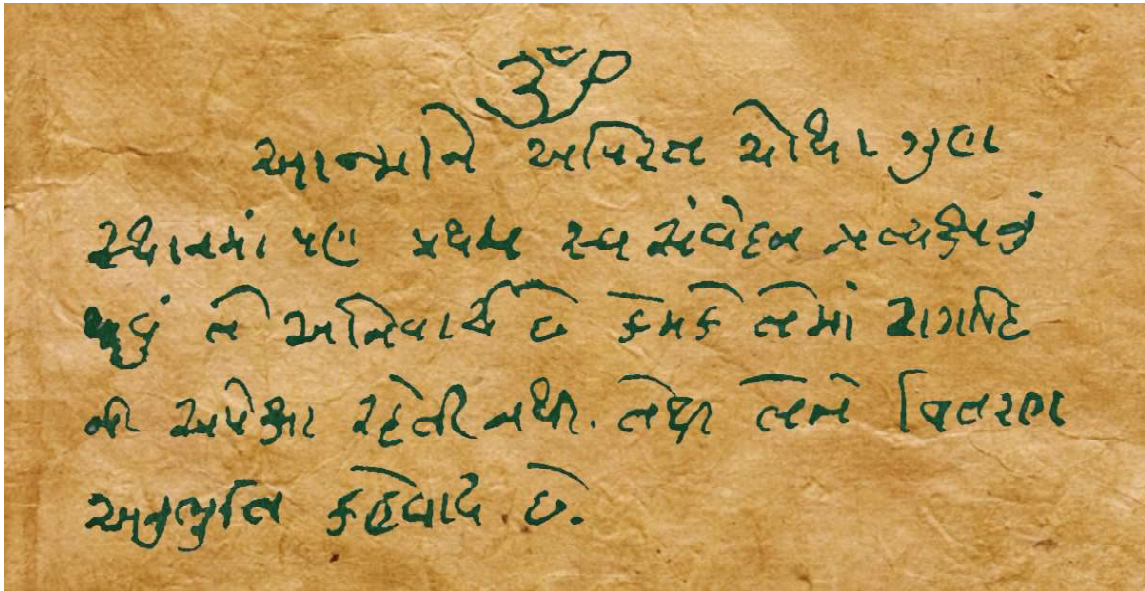 ૐ
આત્માને અવિરત ચોથા ગુણ
સ્થાનમાં પણ પ્રથમ સ્વ સંવેદન પ્રત્યક્ષનું
થવું તે અનિવાર્ય છે કેમકે તેમાં રાગાદિ
ની અપેક્ષા રહેતી નથી. તેથી તેને વિતરાગ
અનુભુતિ કહેવાય છે.